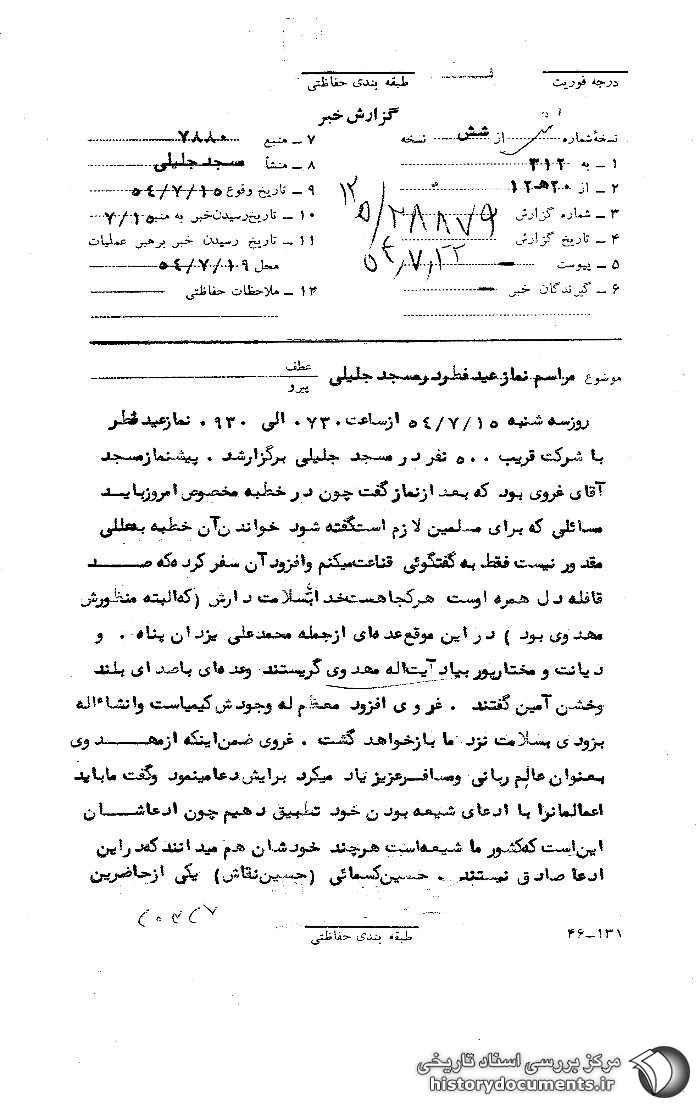 درجه فوریت
طبقه بندی حفاظتی
گزارش خبر
نسخهٔ شماره از شش نسخه
۱ - به ۳۱۲
۲ - از ۲۰هـ۱۲
۳ - شماره گزارش ۲۸۸۷۹/
۴ - تاریخ گزارش ۵۴،۷،۲۲
۵ - پیوست -
۶ - گیرندگان خبر -
۷ - منبع ۷۸۸۰
۸ - منشأ مسجد جلیلی
۹ - تاریخ وقوع ۵۴/۷/۱۵
۱۰ - تاریخ رسیدن خبر به منبع ۷/۱۵
۱۱ - تاریخ رسیدن خبر برهبر عملیات
محل ۵۴/۷/۰۱۹
۱۲ - ملاحظات حفاظتی
موضوع مراسم نماز عید فطر در مسجد جلیلی عطف
پیرو
روز سه شنبه ۵۴/۷/۱۵ از ساعت ۰۷۳۰ الی ۰۹۳۰ نماز عید فطر
با شرکت قریب ۵۰۰ نفر در مسجد جلیلی برگزار شد . پیشنماز مسجد
آقای غروی بود که بعد از نماز گفت چون در خطبه مخصوص امروز باید
مسائلی که برای مسلمین لازم است گفته شود خواندن آن خطبه بعللی
مقدور نیست فقط به گفتگوئی قناعت میکنم وافزود آن سفر کرده که صــد
قافله دل همره اوست هرکجا هست خدایا بسلامت دارش (که البته منظورش
مهدوی بود ) در این موقع عده ای از جمله محمد علی یزدان پناه . و
دیانت و مختارپور بیاد آیت‌اله مهدوی گریستند وعده ای باصدای بلند
وخشن آمین گفتند . غروی افزود معظم له وجودش کیمیاست وانشاءاله
بزودی بسلامت نزد ما باز خواهد گشت . غروی ضمن اینکه از مهــدوی
بعنوان عالم ربانی ومسافر عزیز یاد میکرد برایش دعا مینمود وگفت ما باید
اعمالمانرا با ادعای شیعه بودن خود تطبیق دهیم چون ادعاشــان
این است که کشور ما شیعه است هر چند خودشان هم میدانند که در این
ادعا صادق نیستند . حسین کسمائی (حسین نقاش) یکی از حاضرین
طبقه بندی حفاظتی
۴۶-۱۳۱
مرکز بررسی اسناد تاریخی
historydocuments.ir